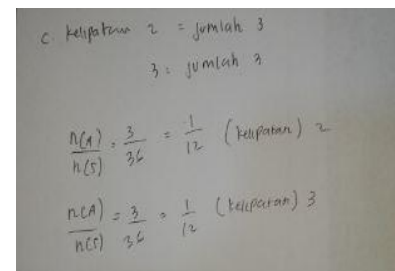 c. kelipatan 2 = jumlah 3
3 = jumlah 3
n(A)/n(S) = 3/36 = 1/12 (kelipatan) 2
n(A)/n(S) = 3/36 = 1/12 (kelipatan) 3